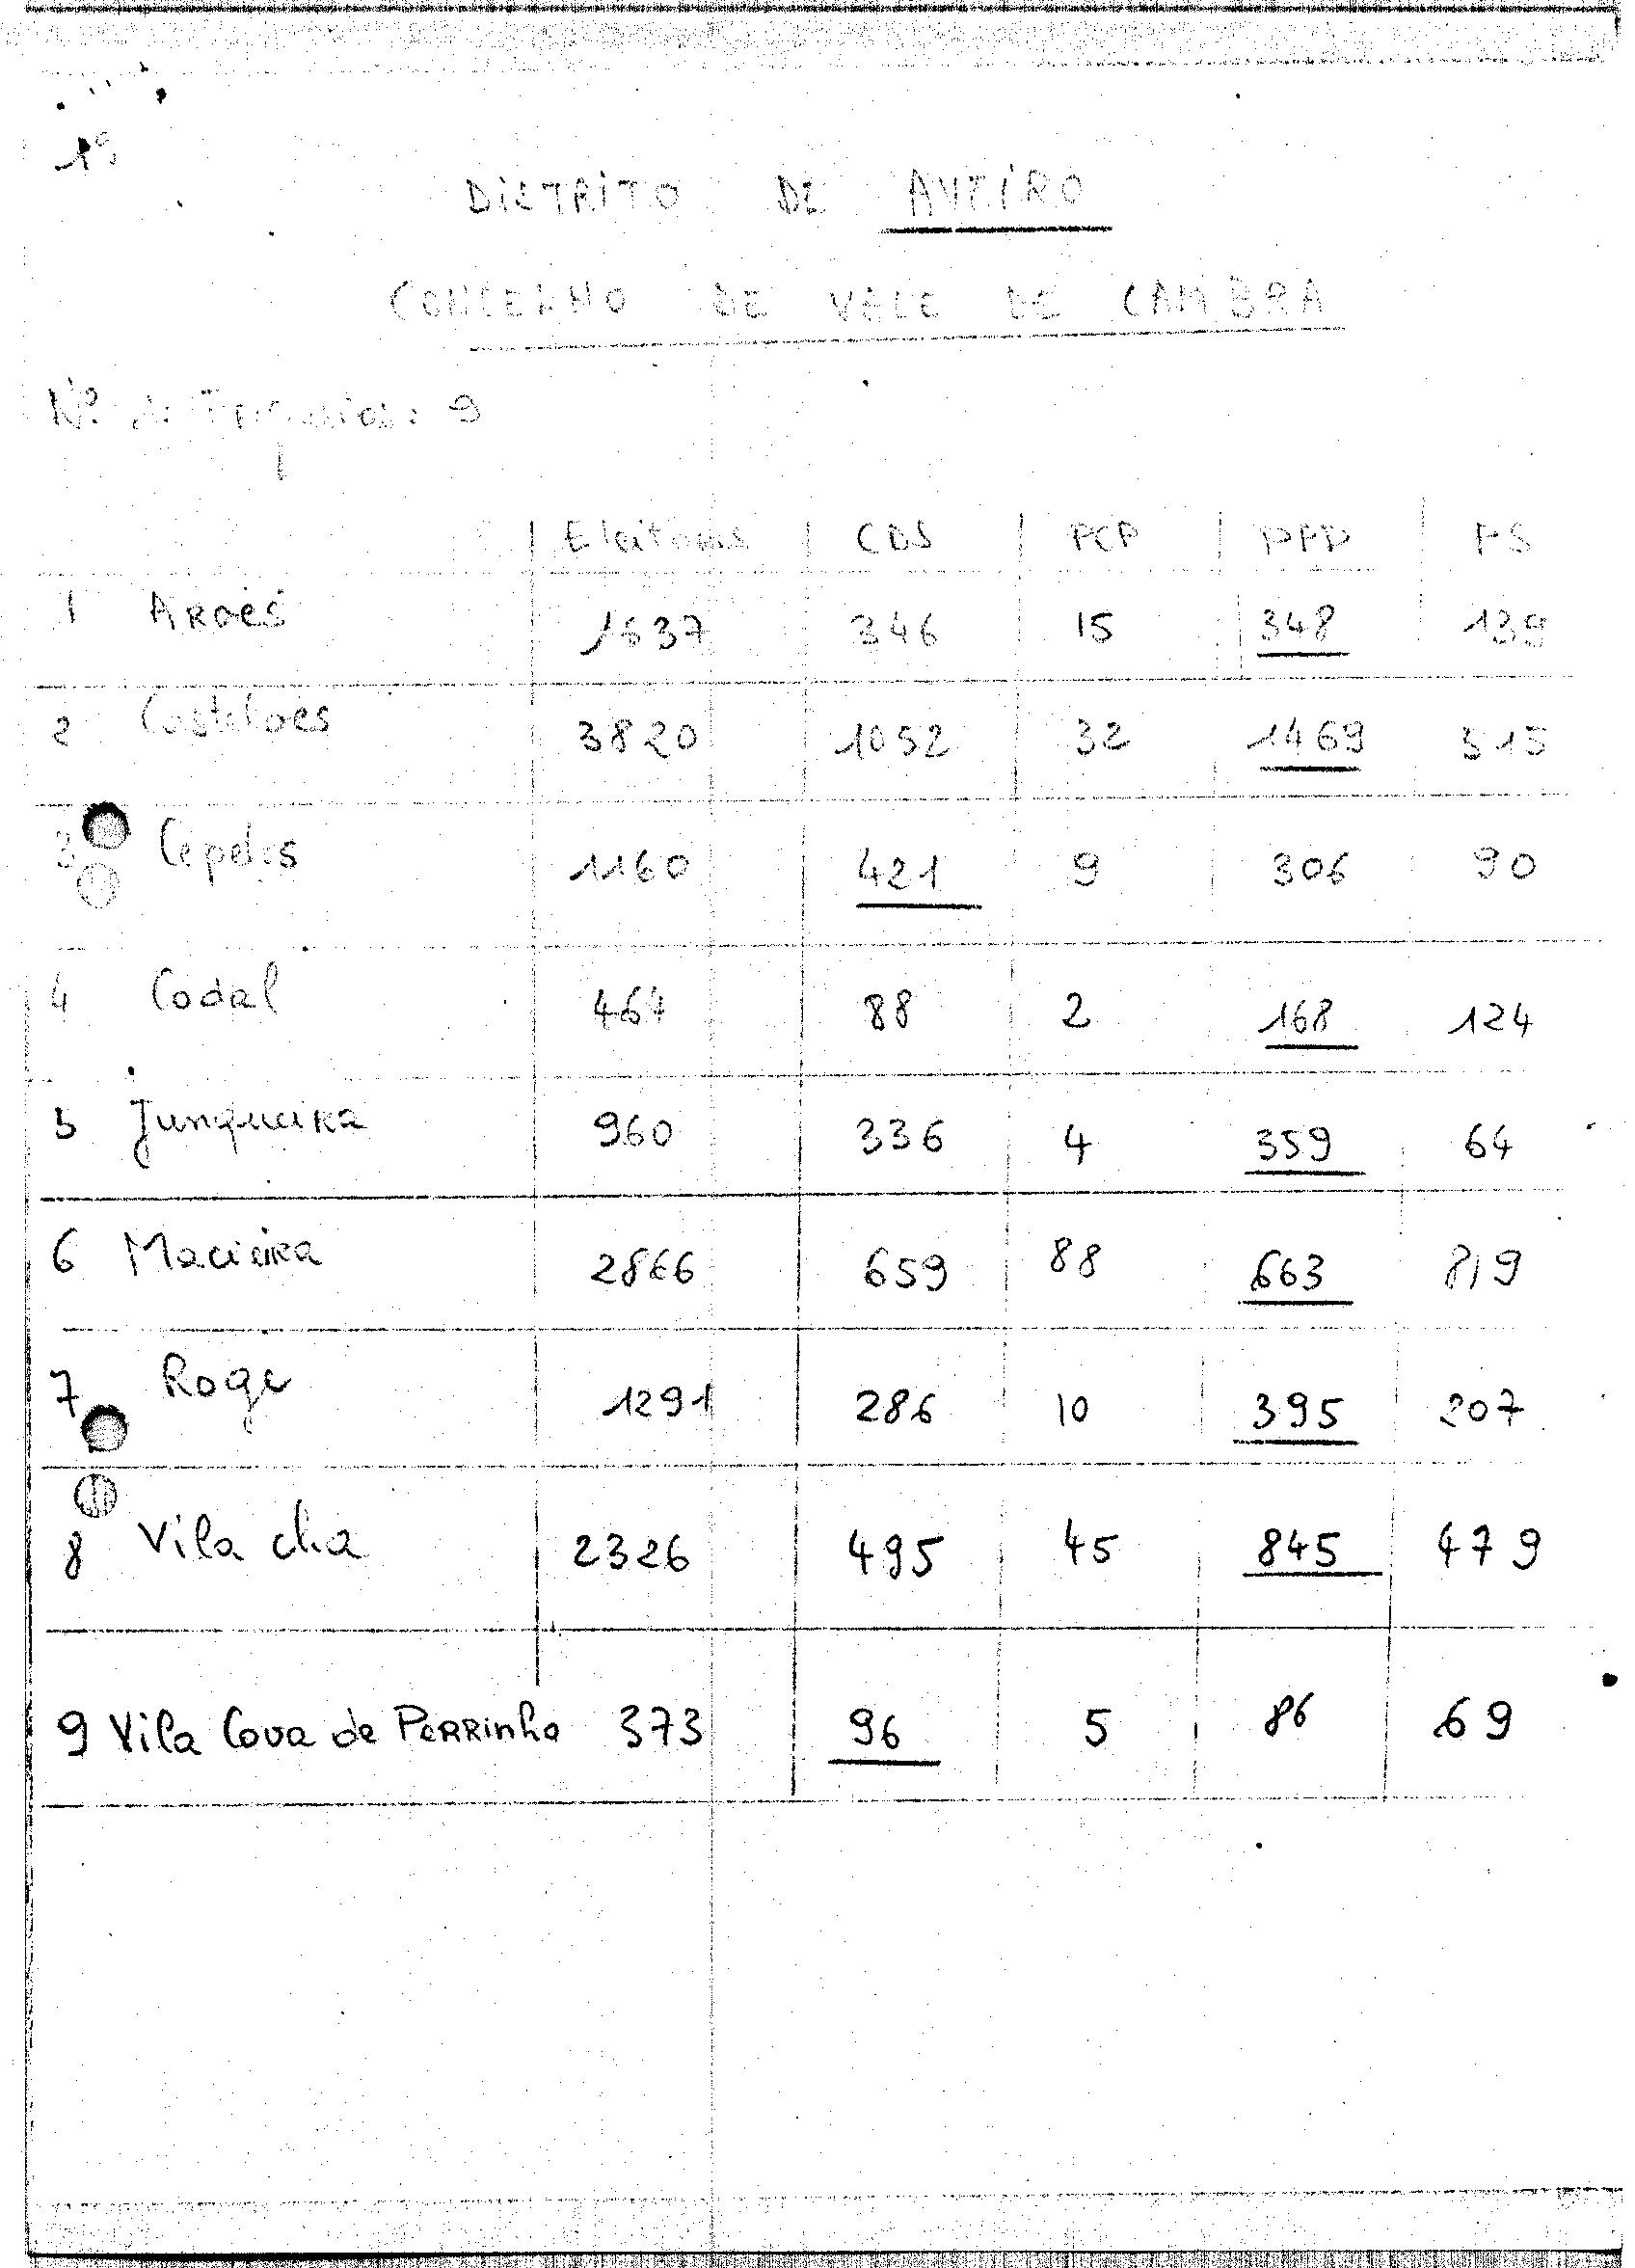 1º
DISTRITO DE AVEIRO
CONCELHO DE VALE DE CAMBRA
Nº de Freguesias: 9
Eleitores CDS PCP PPD PS
1 Arões 1637 346 15 348 139
2 Castelões 3820 1052 32 1469 515
3 Cepelos 1160 421 9 306 90
4 Codal 467 88 2 168 124
5 Junqueira 960 336 4 359 64
6 Macieira 2866 659 88 663 819
7 Roge 1291 286 10 395 207
8 Vila chã 2326 495 45 845 479
9 Vila Cova de Perrinho 373 96 5 86 69